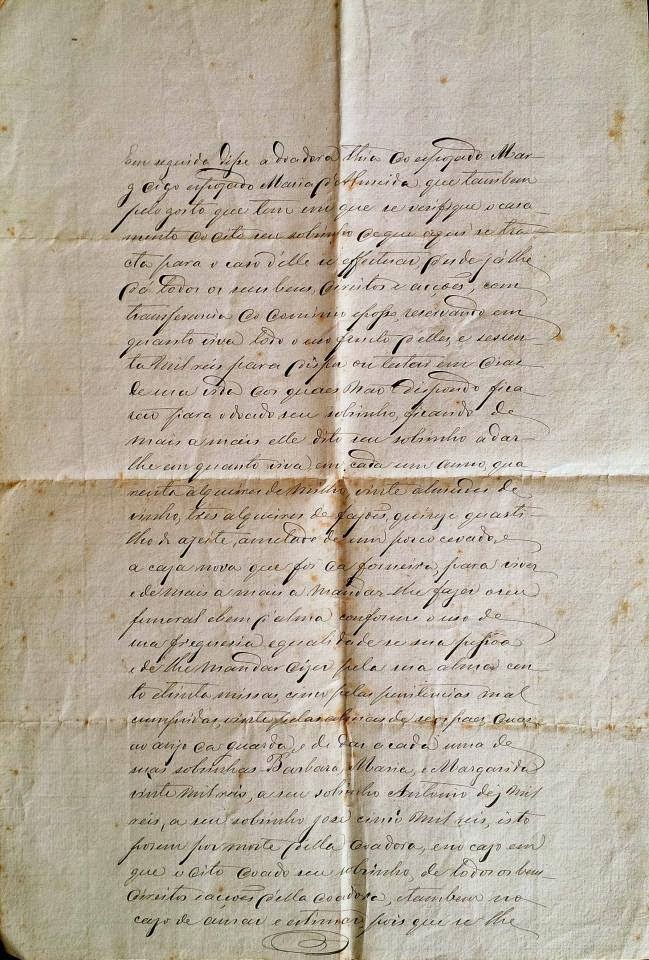 Em seguida disse a doadora thia do esposado Mar-
g digo esposado Maria d'Almeida que tambem
pelo gosto que tem em que se verifique o casa-
mento do dito seu sobrinho de que aqui se tra-
cta para o caso d'elle se effectuar desde já lhe
dá todos os seus bens, direitos e acções, com
transferencia do dominio e posse, reservando em
quanto viva todo o uso fructo delles, e sessen-
ta mil réis para dispor ou testar em
de sua vida dos quaes não dispondo fica
rão para o doado seu sobrinho, ficando de
mais a mais elle dito seu sobrinho a dar-
lhe em quanto viva em cada um anno, qua
renta alqueires de milho, vinte almudes de
vinho, tres alqueires de fejões, quinze quarti-
lhos de azeite, ametade de um porco cevado, e
a caza nova que foi da forneira, para viver
e de mais a mais a mandar-lhe fazer o seu
funeral e bem d'alma conforme o uso de
sua freguesia e qualidade de sua pessoa
e de lhe mandar dizer pela sua alma cen-
to e trinta missas, cinco pelas penitencias mal
cumpridas, vinte pelas almas de seos paes, duas
ao anjo da guarda, e de dar a cada uma de
suas sobrinhas Barbara, Maria, e Margarida
vinte mil réis, a seu sobrinho Antonio dez mil
réis, a seu sobrinho José cinco mil réis, isto
porem por morte della doadora, e no cazo em
que o dito doado seu sobrinho, de todos os bens
direitos e acções della doadora, e tambem no
cazo de amar e estimar, pois que se lhe